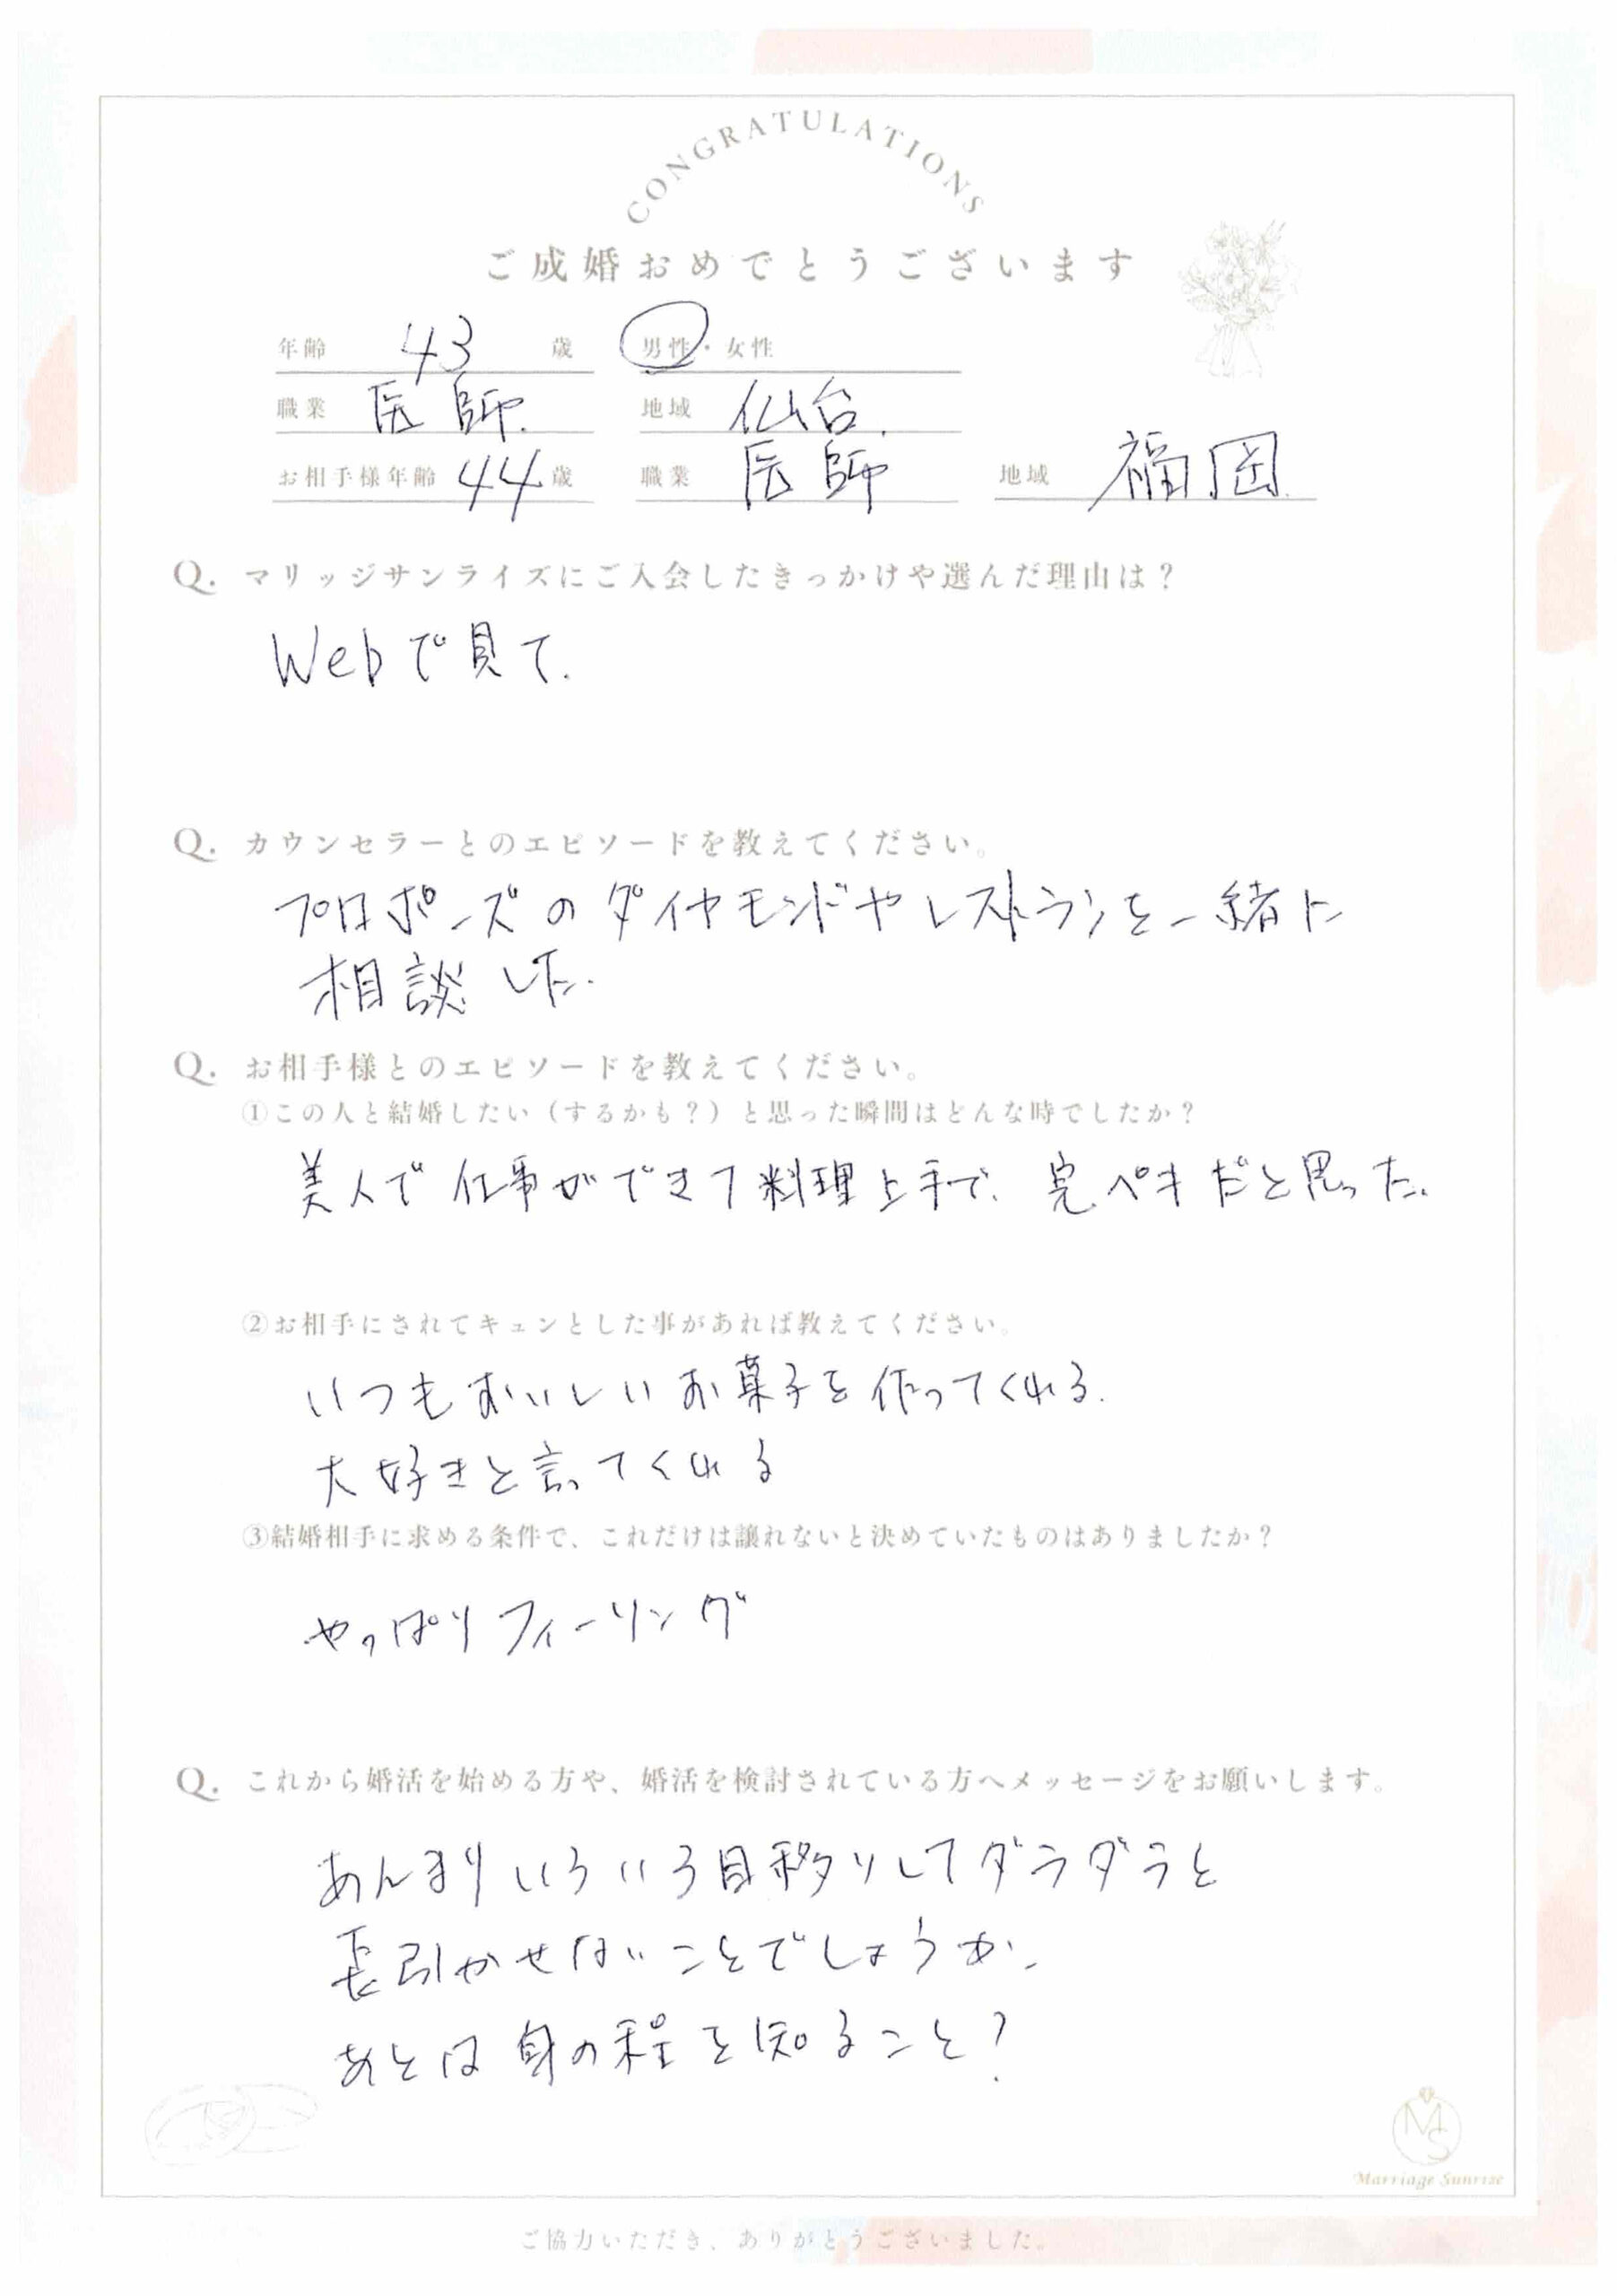 CONGRATULATIONS
ご成婚おめでとうございます
年齢 43 歳 男性・女性
職業 医師. 地域 仙台.
お相手様年齢 44 歳 職業 医師 地域 福岡.
Q. マリッジサンライズにご入会したきっかけや選んだ理由は？
Webで見て.
Q. カウンセラーとのエピソードを教えてください。
プロポーズのダイヤモンドやレストランを一緒に
相談した.
Q. お相手様とのエピソードを教えてください。
①この人と結婚したい（するかも？）と思った瞬間はどんな時でしたか？
美人で仕事ができて料理上手で、完ペキだと思った。
②お相手にされてキュンとした事があれば教えてください。
いつもおいしいお菓子を作ってくれる.
大好きと言ってくれる
③結婚相手に求める条件で、これだけは譲れないと決めていたものはありましたか？
やっぱりフィーリング
Q. これから婚活を始める方や、婚活を検討されている方へメッセージをお願いします。
あんまりいろいろ目移りしてダラダラと
長引かせないことでしょうか、
あとは身の程を知ること？
MS
Marriage Sunrise
ご協力いただき、ありがとうございました。